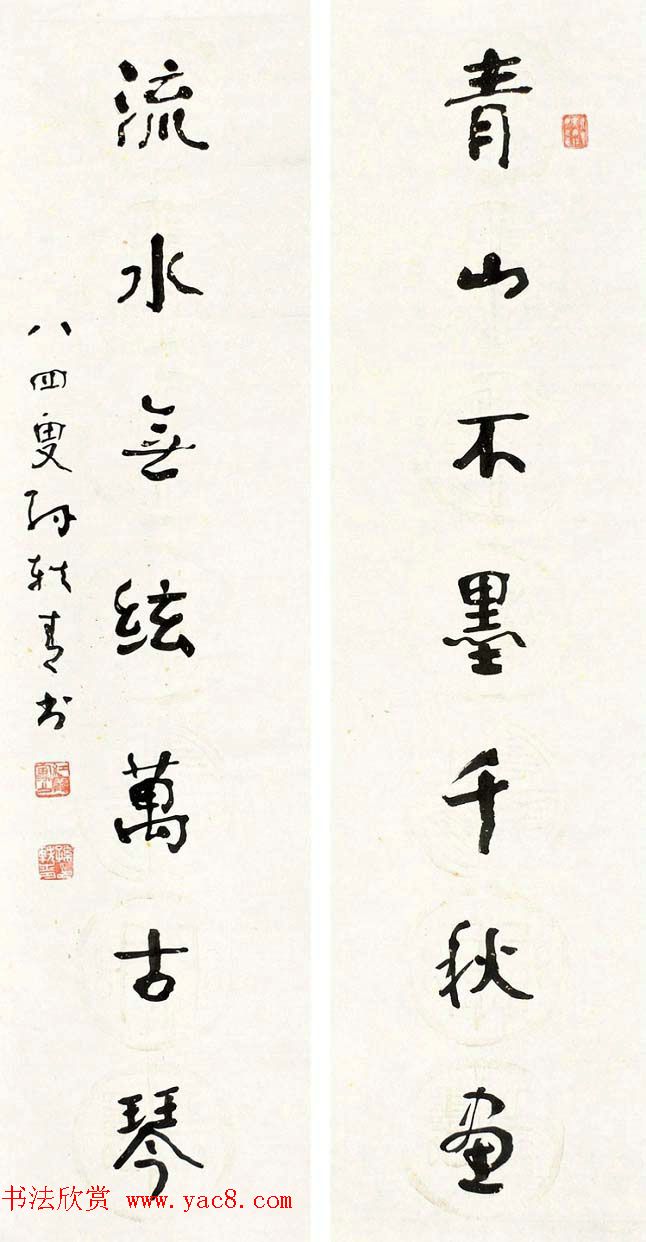 青山不墨千秋画
流水無絃萬古琴
八四叟孫軼青书
书法欣赏 www.yac8.com